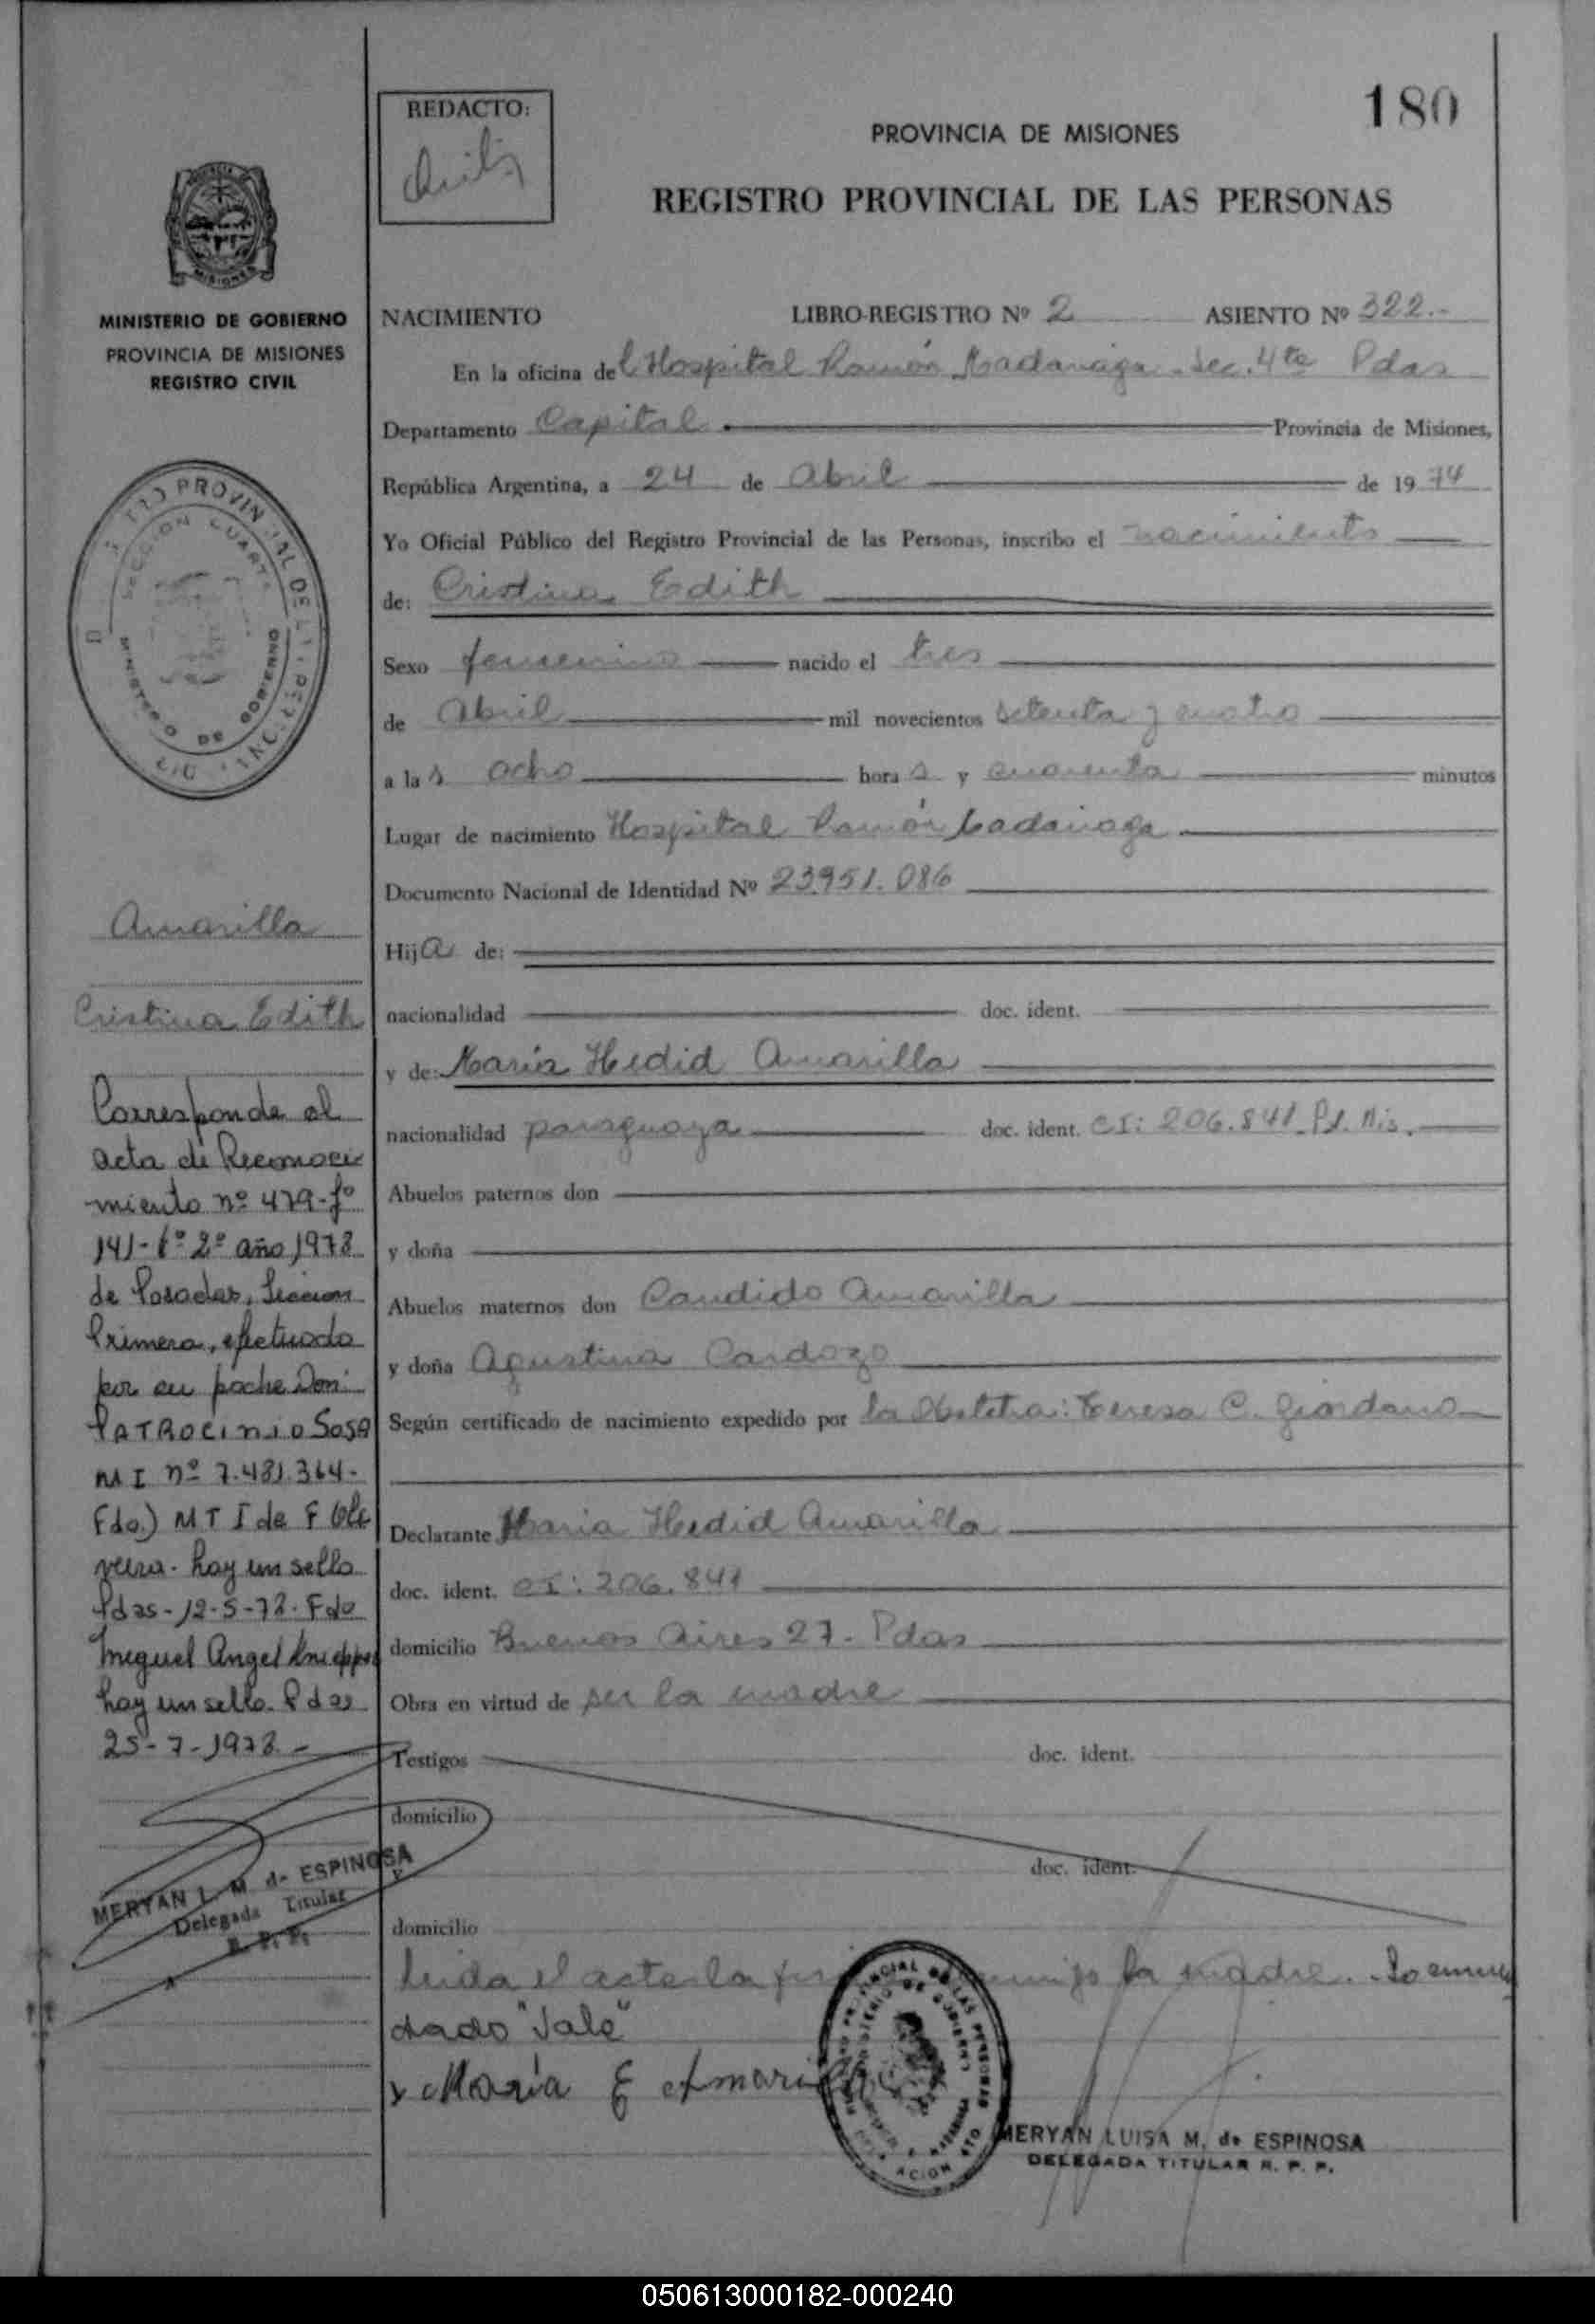 180
REDACTO:
PROVINCIA DE MISIONES
REGISTRO PROVINCIAL DE LAS PERSONAS
MINISTERIO DE GOBIERNO
PROVINCIA DE MISIONES
REGISTRO CIVIL
NACIMIENTO LIBRO-REGISTRO Nº 2 ASIENTO Nº 322.-
En la oficina del Hospital Ramón Madariaga - Sec. 4ta Pdas
Departamento Capital Provincia de Misiones,
República Argentina, a 24 de Abril de 1974
Yo Oficial Público del Registro Provincial de las Personas, inscribo el nacimiento
de: Cristina Edith
Sexo femenino nacido el tres
de Abril mil novecientos setenta y cuatro
a las ocho horas y cuarenta minutos
Lugar de nacimiento Hospital Ramón Madariaga
Documento Nacional de Identidad Nº 23.951.086
Hija de:
nacionalidad doc. ident.
y de: María Hedid Amarilla
nacionalidad paraguaya doc. ident. CI: 206.841 Pl. Mis.
Abuelos paternos don
y doña
Abuelos maternos don Candido Amarilla
y doña Agustina Cardozo
Según certificado de nacimiento expedido por la Obstetra: Teresa C. Giordano
Declarante Maria Hedid Amarilla
doc. ident. CI: 206.841
domicilio Buenos Aires 27 - Pdas
Obra en virtud de ser la madre
Testigos doc. ident.
domicilio
doc. ident.
domicilio
Leida el acta la conmigo la madre. - Lo enmen
dado "Vale"
x Maria E Amarilla
MERYAN LUISA M. de ESPINOSA
DELEGADA TITULAR R. P. P.
Amarilla
Cristina Edith
Corresponde al
acta de Reconoci
miento nº 479-fº
141-tº 2º año 1978
de Posadas, Seccion
Primera, efectuado
por su padre Don:
PATROCINIO SOSA
MI nº 7.481.364-
Fdo.) MTI de F Oli
veira. hay un sello
Pdas-12-5-78. Fdo
Miguel Angel
hay un sello. Pdas
25-7-1978.-
MERYAN L. M. de ESPINOSA
Delegada Titular
R. P. P.
050613000182-000240